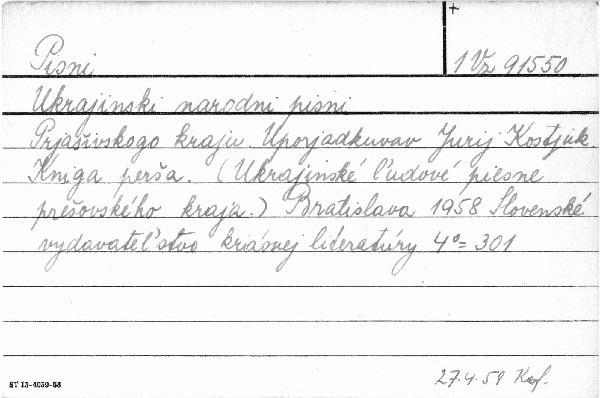 +
Pisni
1 Vz 91550
Ukrajinski narodni pisni
Prjašivskogo kraju. Uporjadkuvav Jurij Kostjuk.
Kniga perša. (Ukrajinské ľudové piesne
prešovského kraja.) Bratislava 1958 Slovenské
vydavateľstvo krásnej literatúry 4°= 301
27.4.59
ST 13-4039-53